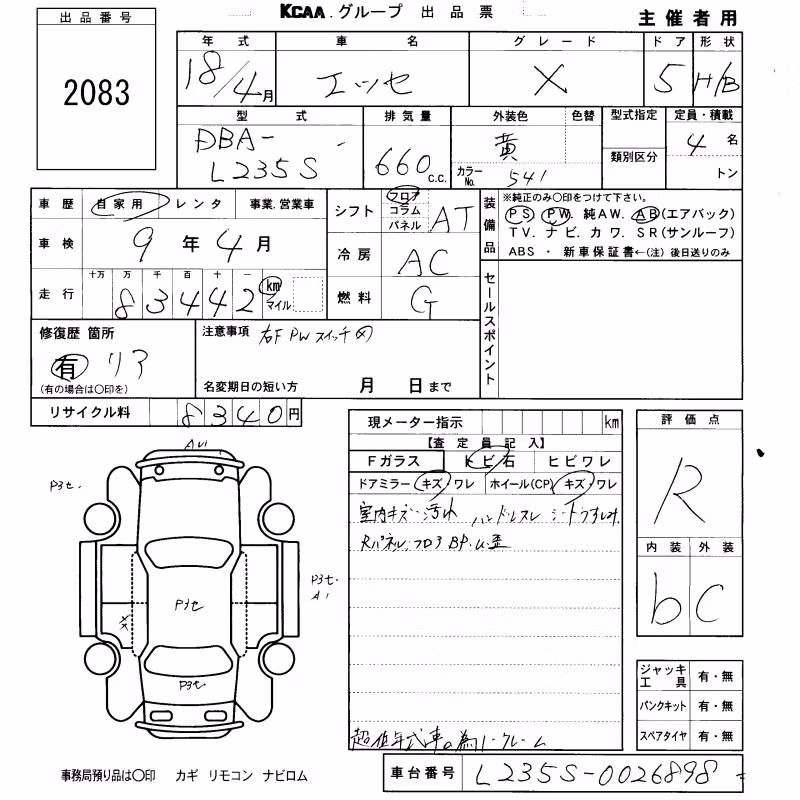 KCAA. グループ 出品票
主催者用
出品番号
2083
年式 車名 グレード ドア 形状
18/4月 エッセ X 5 H/B
型式 排気量 外装色 色替 型式指定 定員・積載
DBA-
L235S 660 c.c. 黄 4 名
カラーNo. 541 類別区分 トン
車歴 自家用 レンタ 事業・営業車
車検 9 年 4 月
走行 十万 万 千 百 十 一 km マイル
83442
シフト フロア コラム パネル AT
冷房 AC
燃料 G
装備品
※純正のみ○印をつけて下さい。
PS. PW. 純AW. AB(エアバック)
TV. ナビ. カワ. SR(サンルーフ)
ABS ・ 新車保証書←(注)後日送りのみ
セールスポイント
修復歴 箇所
有 リア
(有の場合は○印を)
注意事項 右F PW スイッチ
名変期日の短い方 月 日まで
リサイクル料 8340円
現メーター指示 km
【査定員記入】
Fガラス トビ石 ヒビワレ
ドアミラー キズ・ワレ ホイール(CP) キズ・ワレ
室内キズ・汚れ ハンドルスレ
Rパネル.フロア BP.
評価点
R
内装 外装
b C
A1
P3セ.
P3セ.
A1
P3セ
P3セ
ジャッキ工具 有・無
パンクキット 有・無
スペアタイヤ 有・無
超低年式車の為ノークレーム
車台番号 L235S-0026898
事務局預り品は○印 カギ リモコン ナビロム